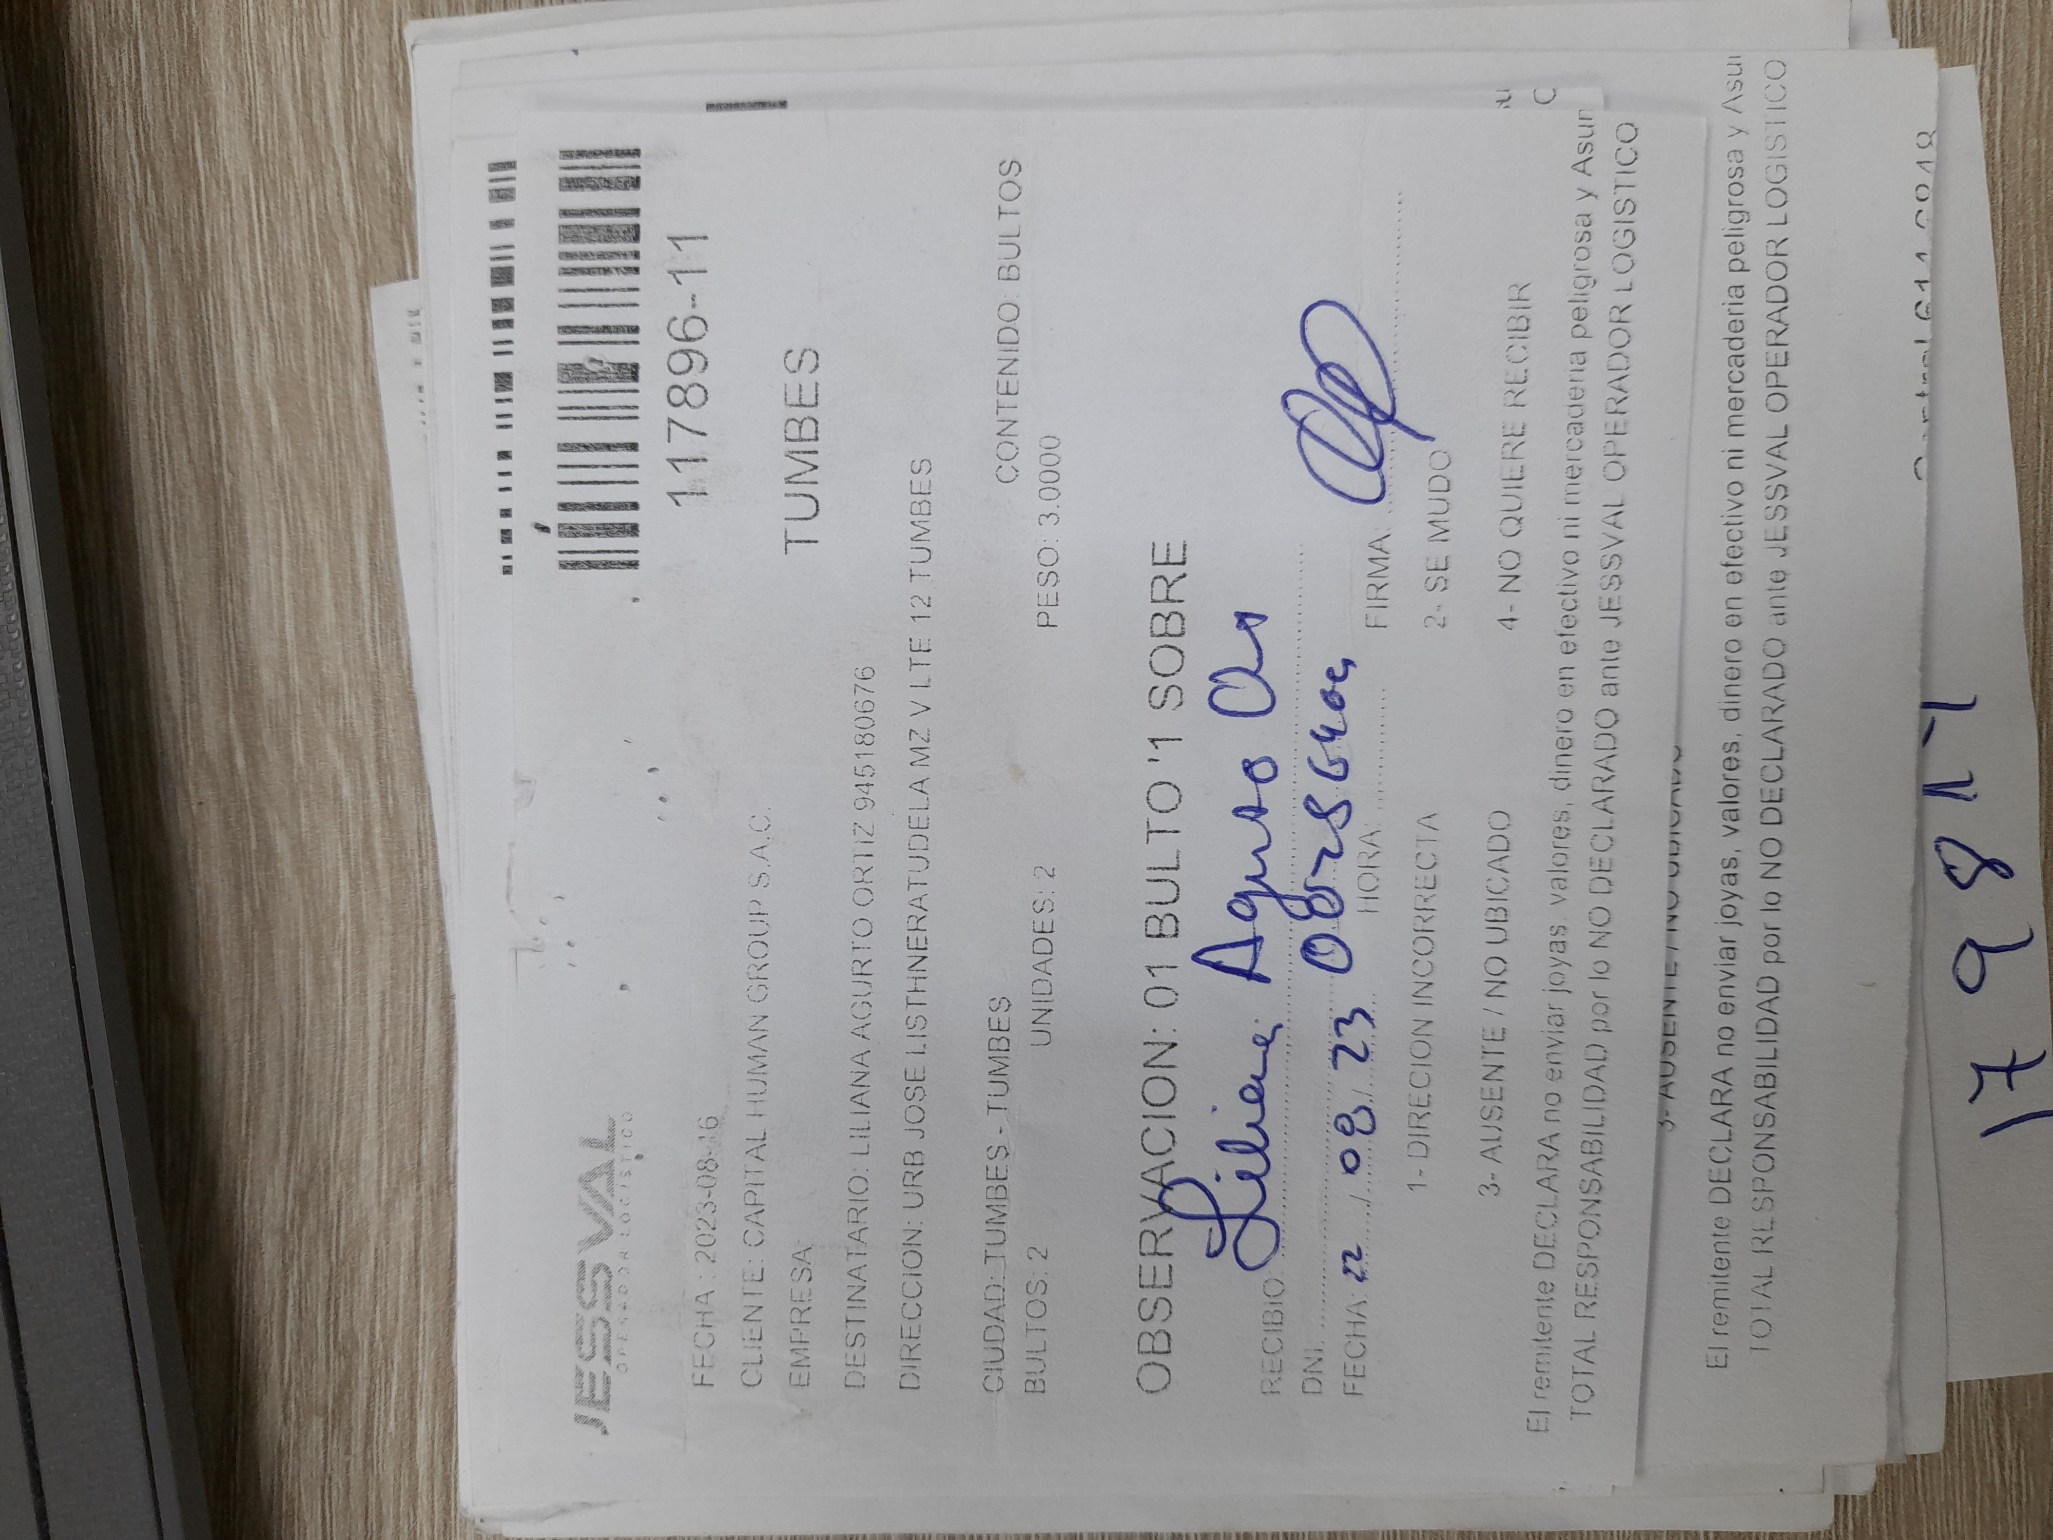 JESSVAL
OPERADOR LOGISTICO
117896-11
FECHA : 2023-08-16
CLIENTE: CAPITAL HUMAN GROUP S.A.C.
EMPRESA:
TUMBES
DESTINATARIO: LILIANA AGURTO ORTIZ 945180676
DIRECCION: URB JOSE LISTHNERATUDELA MZ V LTE 12 TUMBES
CIUDAD: TUMBES - TUMBES
CONTENIDO: BULTOS
BULTOS: 2 UNIDADES: 2 PESO: 3.0000
OBSERVACION: 01 BULTO '1 SOBRE
RECIBIO: Liliana Agurto
DNI:
FECHA: 22 / 08 / 23 HORA: FIRMA:
1- DIRECION INCORRECTA 2- SE MUDO
3- AUSENTE / NO UBICADO 4- NO QUIERE RECIBIR
El remitente DECLARA no enviar joyas, valores, dinero en efectivo ni mercaderia peligrosa y Asum
TOTAL RESPONSABILIDAD por lo NO DECLARADO ante JESSVAL OPERADOR LOGISTICO
3- AUSENTE / NO UBICADO
El remitente DECLARA no enviar joyas, valores, dinero en efectivo ni mercaderia peligrosa y Asu
TOTAL RESPONSABILIDAD por lo NO DECLARADO ante JESSVAL OPERADOR LOGISTICO